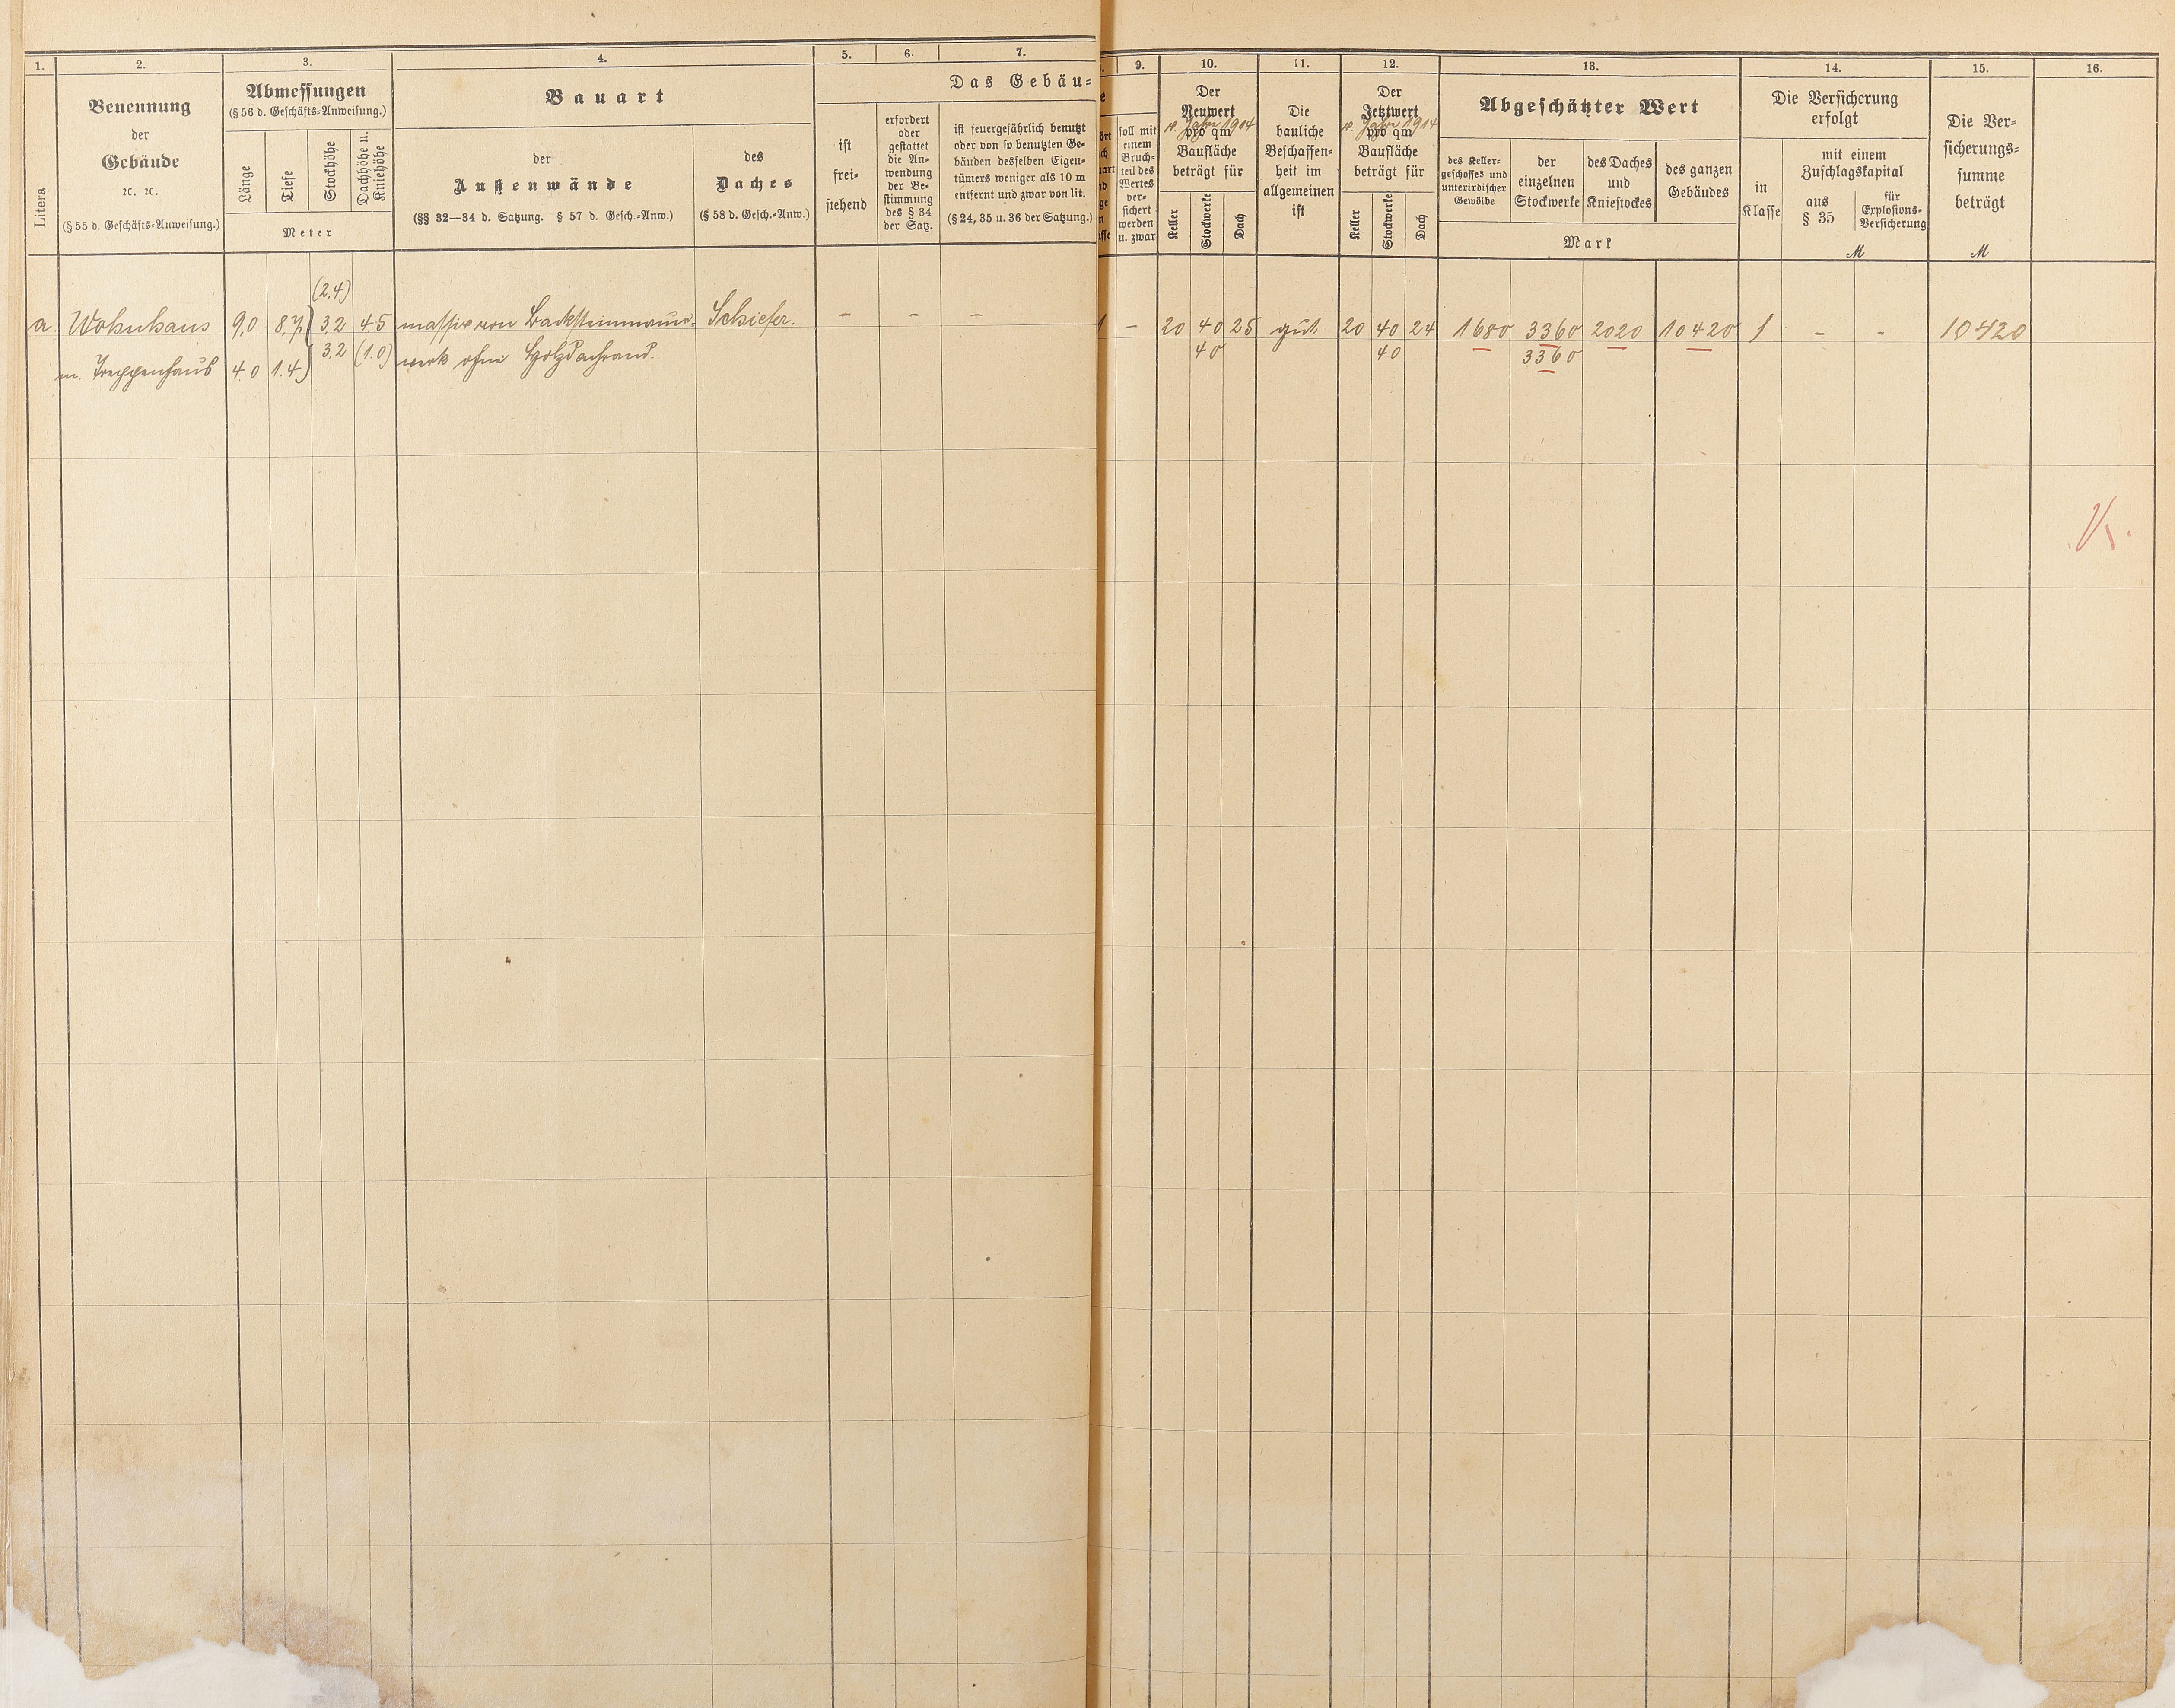 1.
2.
3.
4.
5.
6.
7.
9.
10.
11.
12.
13.
14.
15.
16.
Litera
Benennung
der
Gebäude
ꝛc. ꝛc.
(§ 55 d. Geschäfts-Anweisung.)
Abmessungen
(§ 56 d. Geschäfts-Anweisung.)
Länge
Tiefe
Stockhöhe
Dachhöhe u.
Kniehöhe
Meter
Bauart
der
Außenwände
(§§ 32—34 d. Satzung. § 57 d. Gesch.-Anw.)
des
Daches
(§ 58 d. Gesch.-Anw.)
Das Gebäu-
ist
frei-
stehend
erfordert
oder
gestattet
die An-
wendung
der Be-
stimmung
des § 34
der Satz.
ist feuergefährlich benutzt
oder von so benutzten Ge-
bäuden desselben Eigen-
tümers weniger als 10 m
entfernt und zwar von lit.
(§ 24, 35 u. 36 der Satzung.)
soll mit
einem
Bruch-
teil des
Wertes
ver-
sichert
werden
u. zwar
Der
Neuwert
Jahre 1914
pro qm
Baufläche
beträgt für
Keller
Stockwerke
Dach
Die
bauliche
Beschaffen-
heit im
allgemeinen
ist
Der
Jetztwert
Jahre 1914
pro qm
Baufläche
beträgt für
Keller
Stockwerke
Dach
Abgeschätzter Wert
des Keller-
geschosses und
unterirdischer
Gewölbe
der
einzelnen
Stockwerke
des Daches
und
Kniestockes
des ganzen
Gebäudes
Mark
Die Versicherung
erfolgt
in
Klasse
mit einem
Zuschlagskapital
aus
§ 35
für
Explosions-
Versicherung
M
Die Ver-
sicherungs-
summe
beträgt
M
(2.4)
a. Wohnhaus 9,0 8,7 3,2 4.5 massiv von Backsteinmauer- Schiefer. - - - 1 - 20 40 25 gut 20 40 24 1680 3360 2020 10420 1 - - 10420
m. Treppenhaus 4.0 1.4) 3.2 (1.0) werk ohne Holzdachrand. 40 40 3360